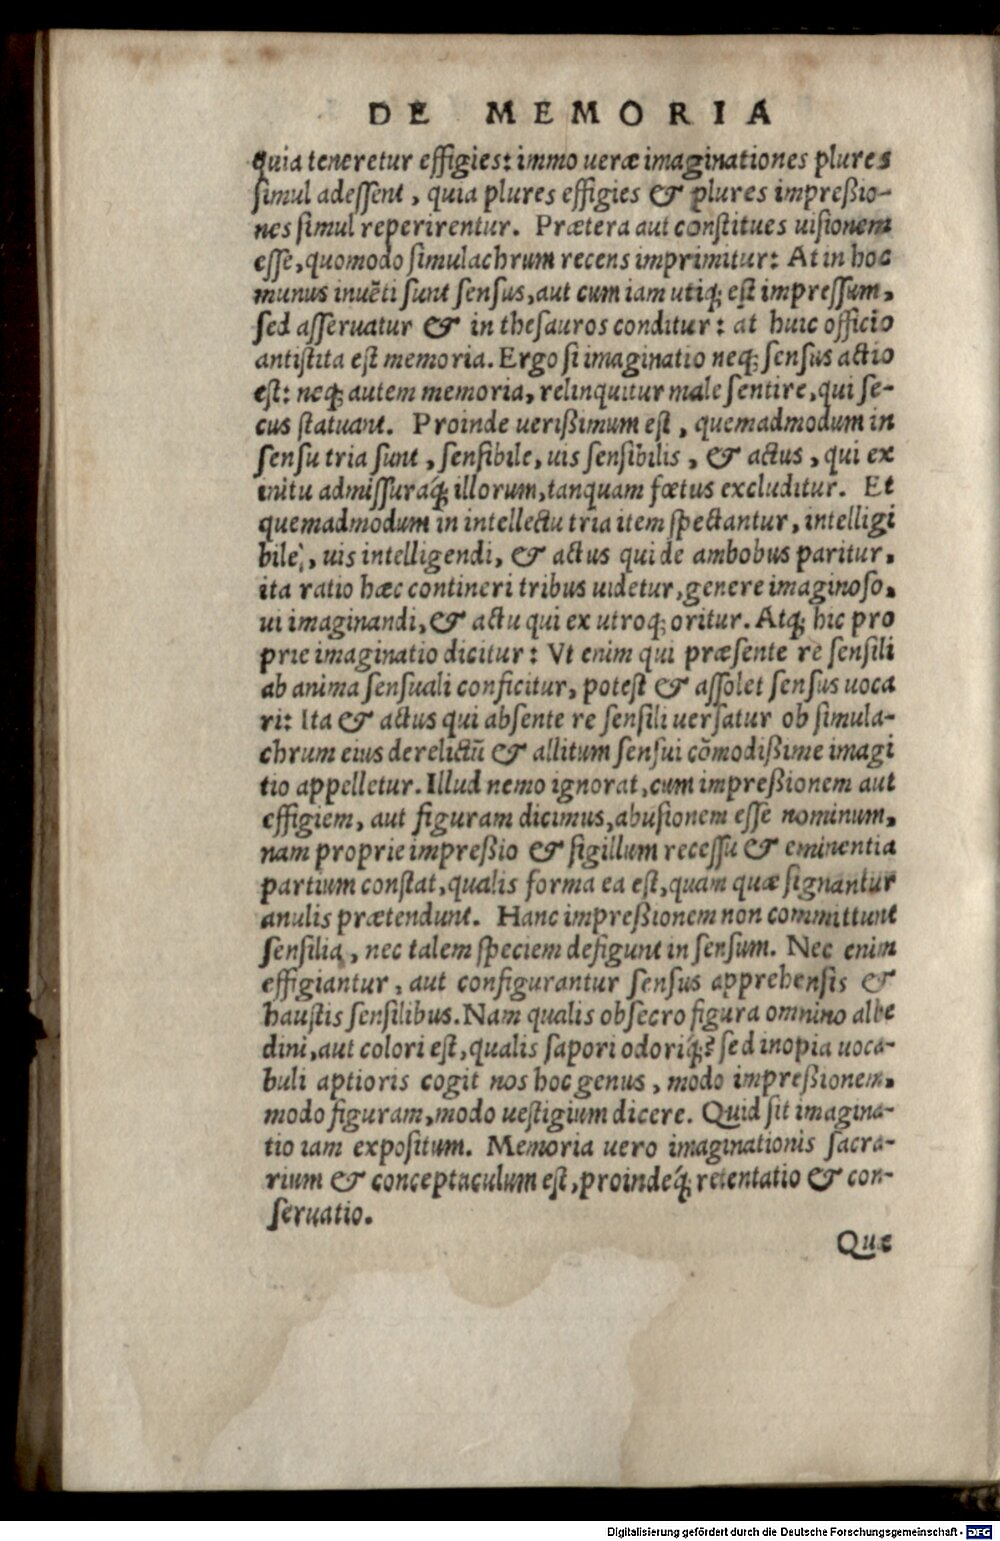 DE MEMORIA
quia teneretur effigies: immo ueræ imaginationes plures
ſimul adeſſent, quia plures effigies & plures impreßio-
nes ſimul reperirentur. Prætera aut conſtitues uiſionem
eſſe, quomodo ſimulachrum recens imprimitur: At in hoc
munus inuẽti ſunt ſenſus, aut cum iam utiq; eſt impreſſum,
ſed aſſeruatur & in theſauros conditur: at huic officio
antiſtita eſt memoria. Ergo ſi imaginatio neq; ſenſus actio
eſt: neq; autem memoria, relinquitur male ſentire, qui ſe-
cus ſtatuant. Proinde uerißimum eſt, quemadmodum in
ſenſu tria ſunt, ſenſibile, uis ſenſibilis, & actus, qui ex
initu admiſſuraq́; illorum, tanquam fœtus excluditur. Et
quemadmodum in intellectu tria item ſpectantur, intelligi
bile, uis intelligendi, & actus qui de ambobus paritur,
ita ratio hæc contineri tribus uidetur, genere imaginoſo,
ui imaginandi, & actu qui ex utroq; oritur. Atq; hic pro
prie imaginatio dicitur: Vt enim qui præſente re ſenſili
ab anima ſenſuali conficitur, poteſt & aſſolet ſenſus uoca
ri: Ita & actus qui abſente re ſenſili uerſatur ob ſimula-
chrum eius derelictũ & allitum ſenſui cõmodißime imagi
tio appelletur. Illud nemo ignorat, cum impreßionem aut
effigiem, aut figuram dicimus, abuſionem eſſe nominum,
nam proprie impreßio & ſigillum receſſu & eminentia
partium conſtat, qualis forma ea eſt, quam quæ ſignantur
anulis prætendunt. Hanc impreßionem non committunt
ſenſilia, nec talem ſpeciem defigunt in ſenſum. Nec enim
effigiantur, aut configurantur ſenſus apprehenſis &
hauſtis ſenſilibus. Nam qualis obſecro figura omnino albe
dini, aut colori eſt, qualis ſapori odoriq́;? ſed inopia uoca-
buli aptioris cogit nos hoc genus, modo impreßionem,
modo figuram, modo ueſtigium dicere. Quid ſit imagina-
tio iam expoſitum. Memoria uero imaginationis ſacra-
rium & conceptaculum eſt, proindeq́; retentatio & con-
ſeruatio.
Quæ
Digitalisierung gefördert durch die Deutsche Forschungsgemeinschaft - DFG